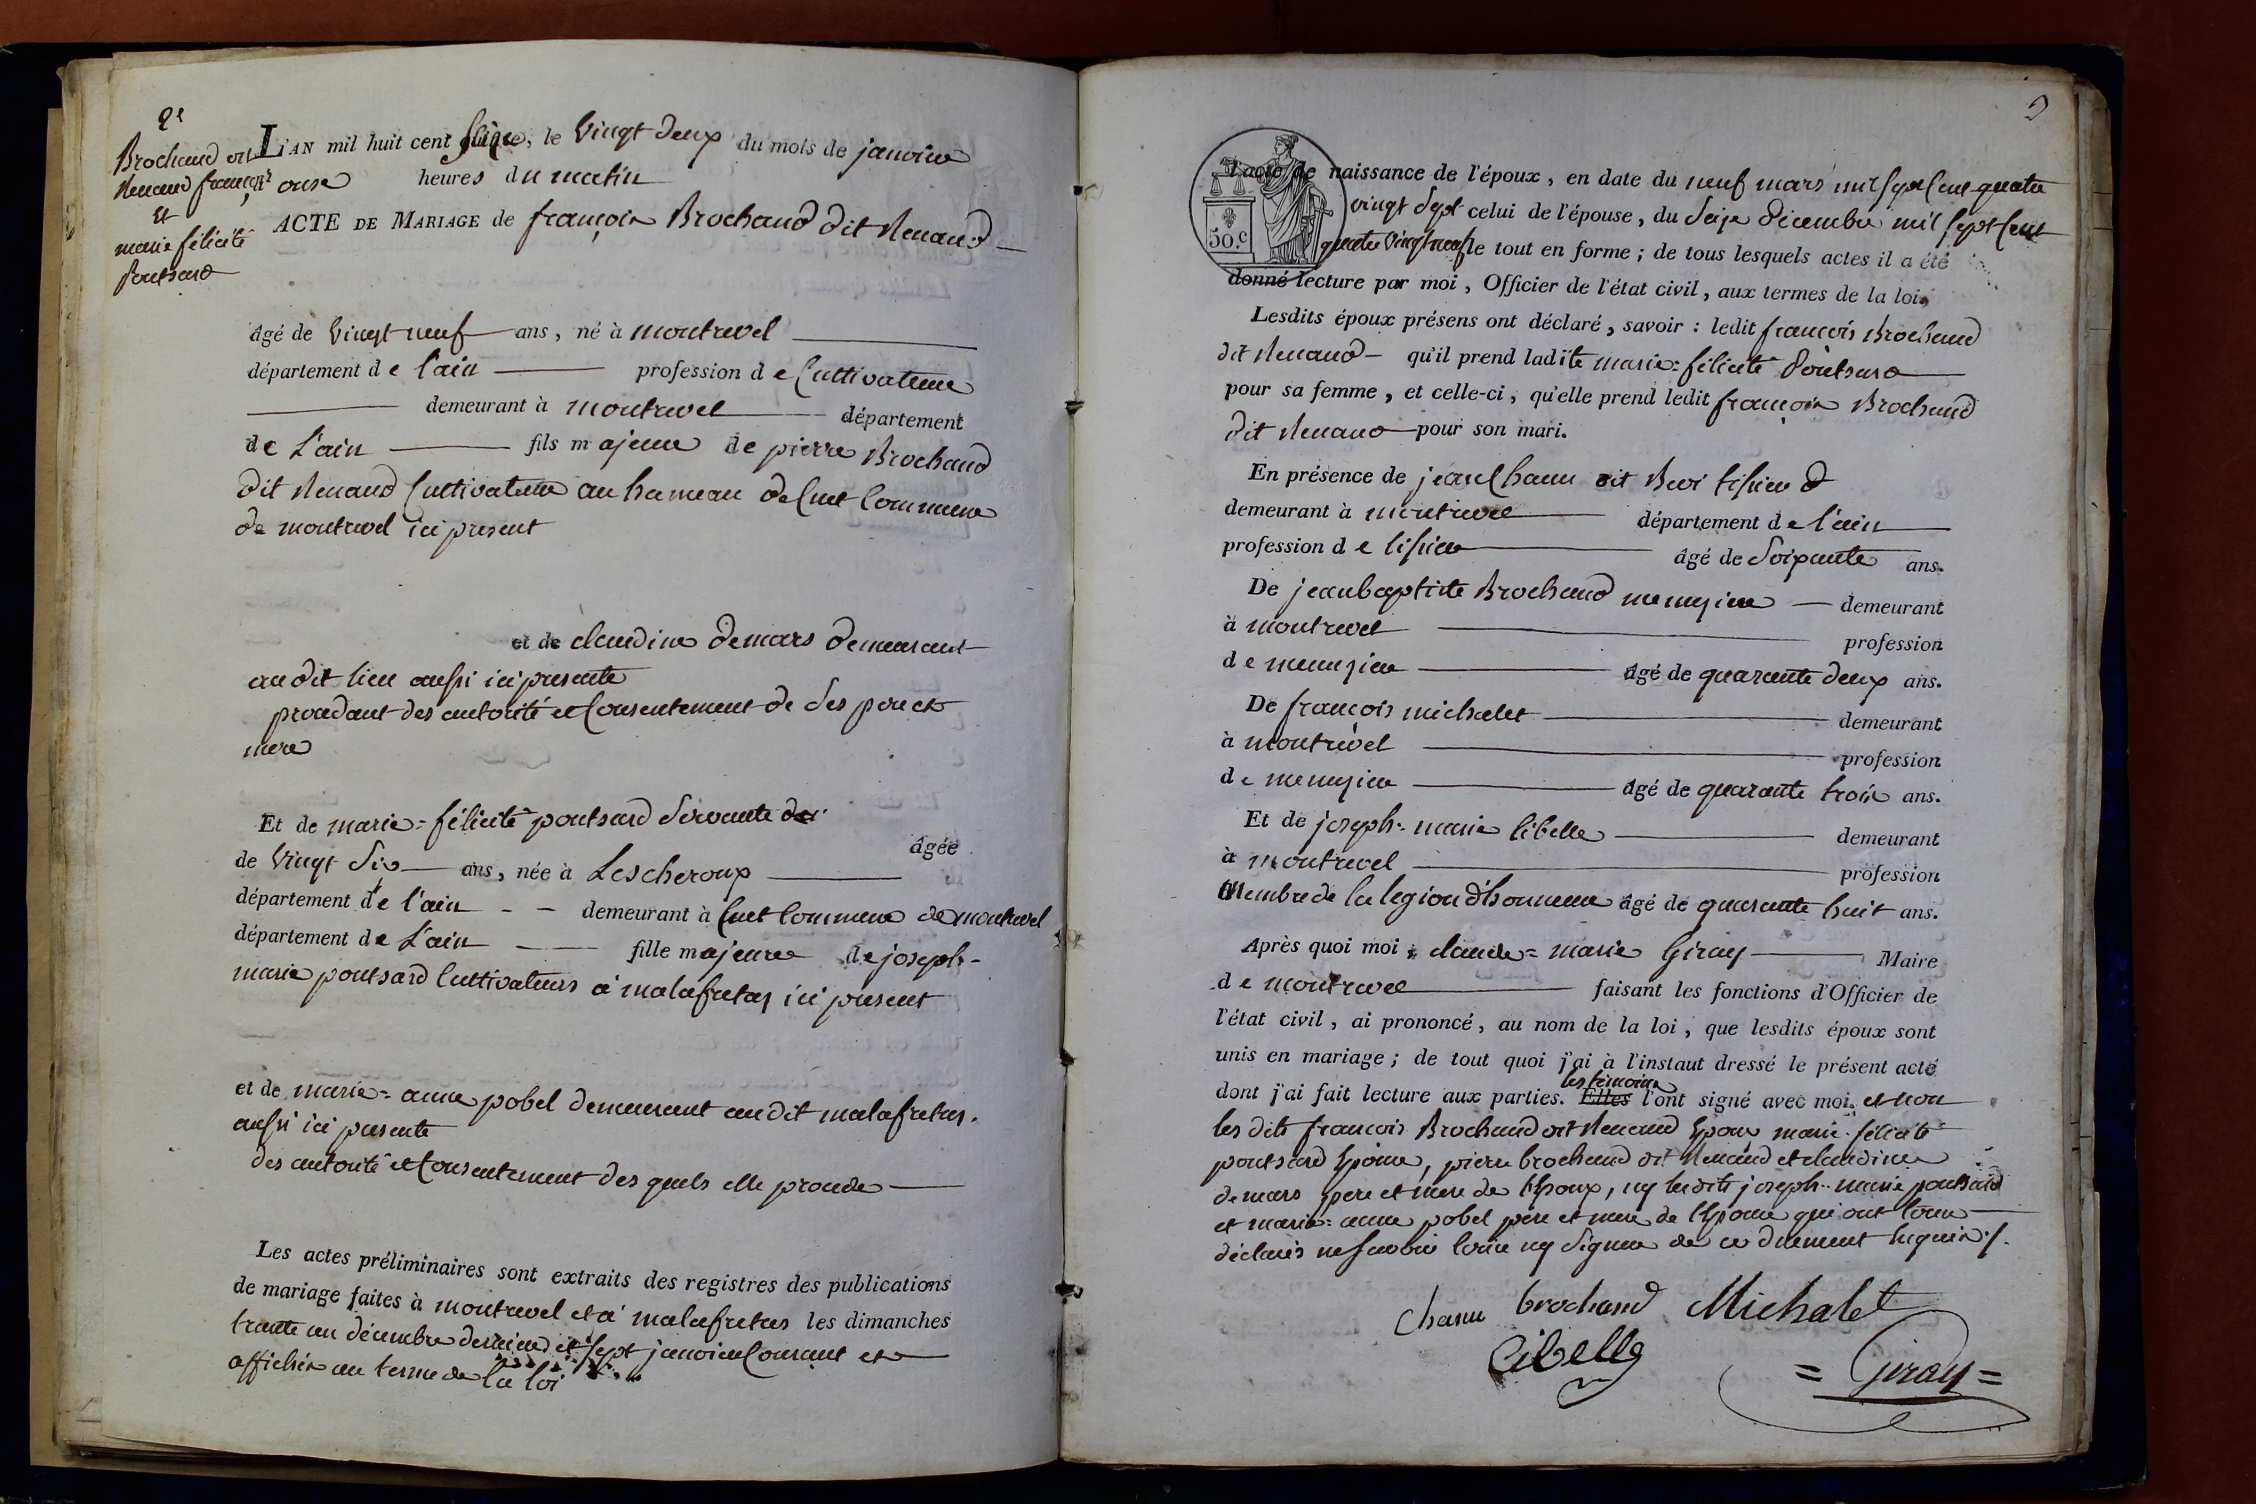 2e
Brochand dit
Renaud françois
Et
marie félicité
Poutsard
L'AN mil huit cent seize, le vingt deux du mois de janvier
onse heures du matin
ACTE DE MARIAGE de françois Brochand dit Renaud
âgé de vingt neuf ans, né à montrevel
département de l'ain profession de Cultivateur
demeurant à montrevel département
de L'ain fils majeur de pierre Brochand
dit Renaud Cultivateur au hameau de Cuet Commune
de montrevel ici present
et de claudine demars demeurant
au dit lieu aussi ici presente
procedant des autorité et Consentement de ses pere et
mere
Et de marie=félicité poutsard Servante
âgée
de vingt six ans, née à Lescheroux
département de l'ain - - demeurant à Cuet Commune de montrevel
département de L'ain fille majeure de joseph-
marie poutsard Cultivateurs à malafretas ici present
et de marie=anne pobel demeurant audit malafretas.
aussi ici presente
des autorité et Consentement des quels elle procede
Les actes préliminaires sont extraits des registres des publications
de mariage faites à montrevel et à malafretas les dimanches
trante un décembre dernier et sept janvier Courant et
affichés au terme de la loi
2
50.c
l'acte de naissance de l'époux, en date du neuf mars mil sept Cent quatre
vingt Sept celui de l'épouse, du Seize décembre mil sept Cent
quatre vingt neuf le tout en forme; de tous lesquels actes il a été
donné lecture par moi, Officier de l'état civil, aux termes de la loi.
Lesdits époux présens ont déclaré, savoir: ledit françois Brochand
dit Renaud - qu'il prend ladite marie=félicité Poutsard
pour sa femme, et celle-ci, qu'elle prend ledit françois Brochand
dit Renaud pour son mari.
En présence de jean Chanu dit tissier
demeurant à montrevel département de l'ain
profession de tissier âgé de Soixante ans.
De jean baptiste Brochand menuzier demeurant
à montrevel profession
de menuzier âgé de quarante deux ans.
De françois michalet demeurant
à montrevel profession
de menuzier âgé de quarante trois ans.
Et de joseph-marie libelle demeurant
à montrevel profession
Membre de la legion d'honneur âgé de quarante huit ans.
Après quoi moi, claude=marie Giray Maire
de montrevel faisant les fonctions d'Officier de
l'état civil, ai prononcé, au nom de la loi, que lesdits époux sont
unis en mariage; de tout quoi j'ai à l'instaut dressé le présent acte
les témoins
dont j'ai fait lecture aux parties. Elles l'ont signé avec moi. et non
les dits françois Brochand dit Renaud Epoux marie félicité
poutsard Epouse, pierre brochand dit Renaud et claudine
demars pere et mere de l'Epoux, ny lesdits joseph-marie poutsard
et marie=anne pobel père et mere de l'Epouse qui ont tous
déclarés ne savoir écrire ny Signer de ce duement requis ./.
Chanu brochand Michalet
Libelle
= Giray =